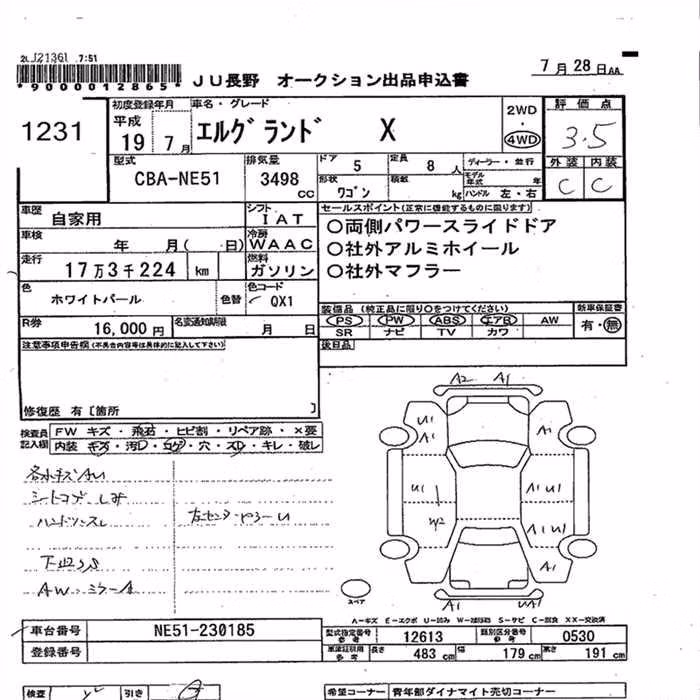 2LJ21361 7:51
*90000012865*
JU長野 オークション出品申込書
7月28日AA
1231
初度登録年月
平成
19 7月
車名・グレード
エルグランド X
2WD
・
4WD
評価点
3.5
外装 内装
C C
型式
CBA-NE51
排気量
3498
CC
ドア 5
定員 8人
ディーラー・並行
モデル年式 年
形状 ワゴン
積載 kg
ハンドル 左・右
車歴
自家用
シフト
IAT
セールスポイント(正常に機能するものに限ります)
○両側パワースライドドア
○社外アルミホイール
○社外マフラー
車検
年 月( 日)
冷房
WAAC
走行
17万3千224 km
燃料
ガソリン
色
ホワイトパール
色替
色コード
QX1
R券
16,000円
名変通知期限
月 日
装備品 (純正品に限り○をつけてください)
PS PW ABS エアB AW
SR ナビ TV カワ
新車保証書
有・無
注意事項申告欄(不具合内容等は具体的に記入して下さい)
後日品
修復歴 有[箇所 ]
検査員
記入欄
FW キズ・飛石・ヒビ割・リペア跡・×要
内装 キズ・汚D・コゲ・穴・スD・キレ・破レ
A2 A1
U1
A1
A1
U1
W2
A1 U1
A1 U1
A1
A1 UA1
スペア
A-キズ E-エクボ U-凹み W-波凹跡 S-サビ C-腐食 XX-交換済
車台番号 NE51-230185
登録番号
型式指定番号
参考
12613
類別区分番号
参考
0530
車庫証明用
参考
長さ 483cm 幅 179cm 高さ 191cm
検査
引き
希望コーナー 青年部ダイナマイト売切コーナー